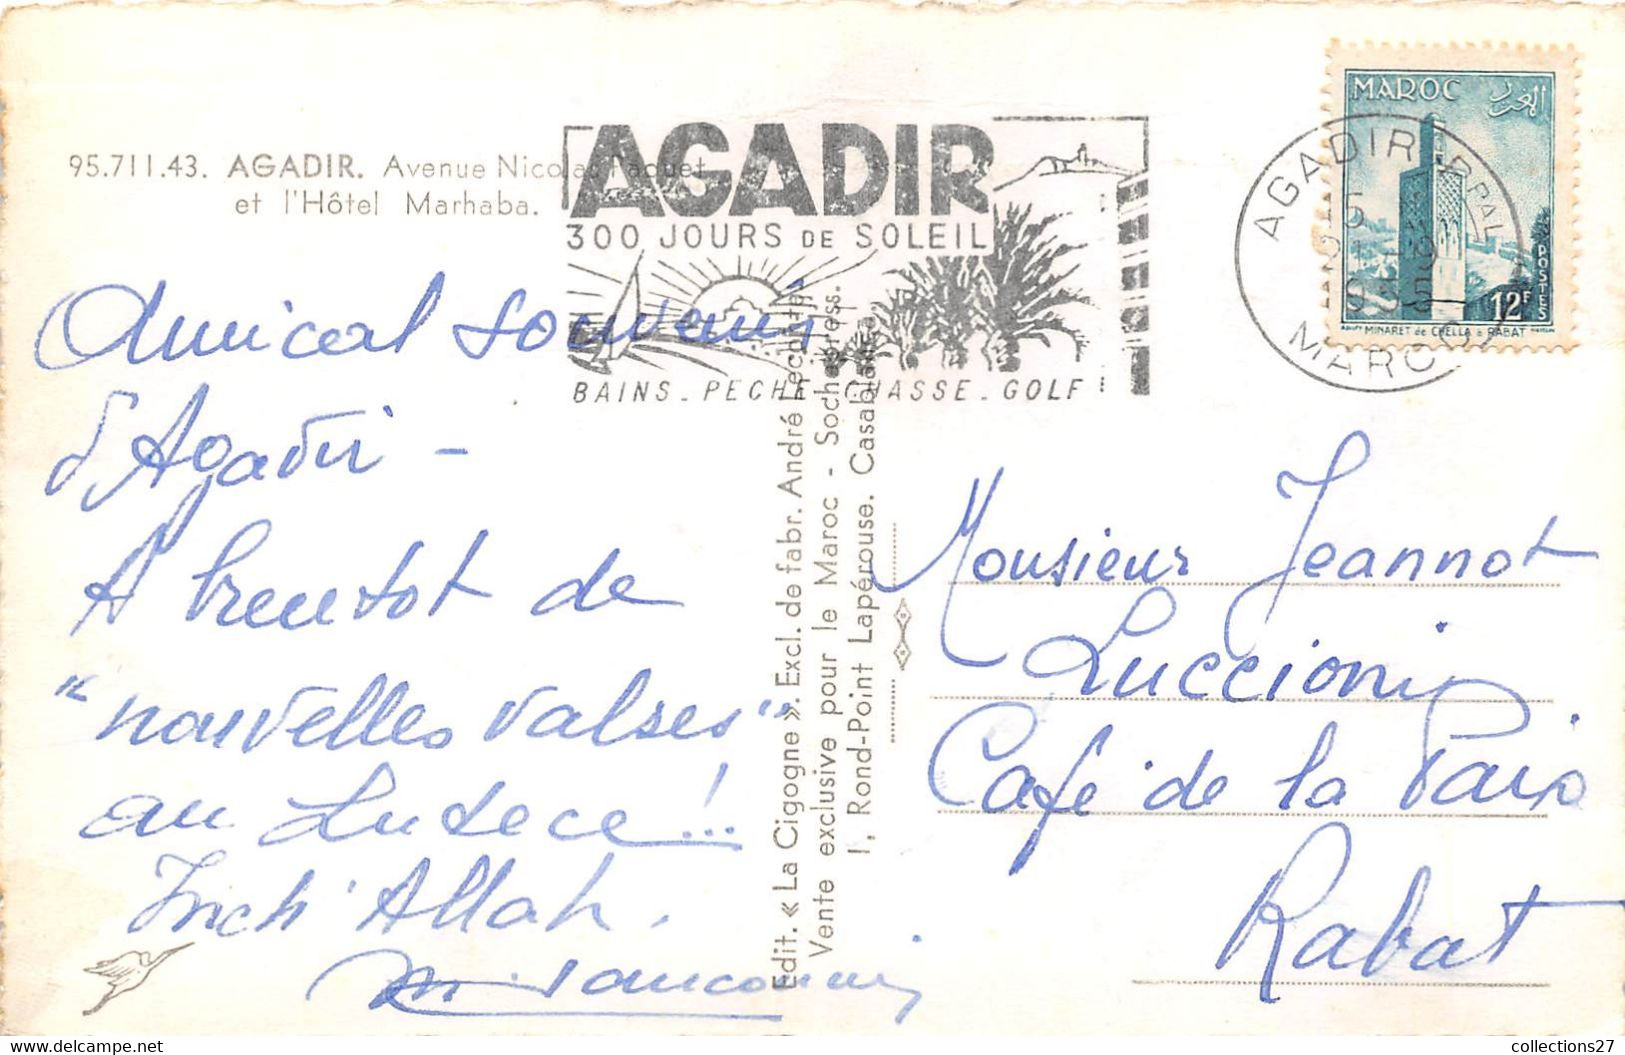 95.711.43. AGADIR. Avenue Nicolas Paquet
et l'Hôtel Marhaba.
AGADIR
300 JOURS DE SOLEIL
BAINS - PECHE - CHASSE - GOLF
MAROC
المغرب
POSTES
12F
MINARET de CHELLA à RABAT
AGADIR PPAL
MAROC
Amical souvenir
d'Agadir -
A bientot de
"nouvelles valses"
au Lutece!...
Inch'Allah.
Edit. « La Cigogne ». Excl. de fabr. André Leconte
Vente exclusive pour le Maroc - Sochepress.
1, Rond-Point Lapérouse. Casablanca
Monsieur Jeannot
Luccioni
Café de la Paix
Rabat
collections27
www.delcampe.net